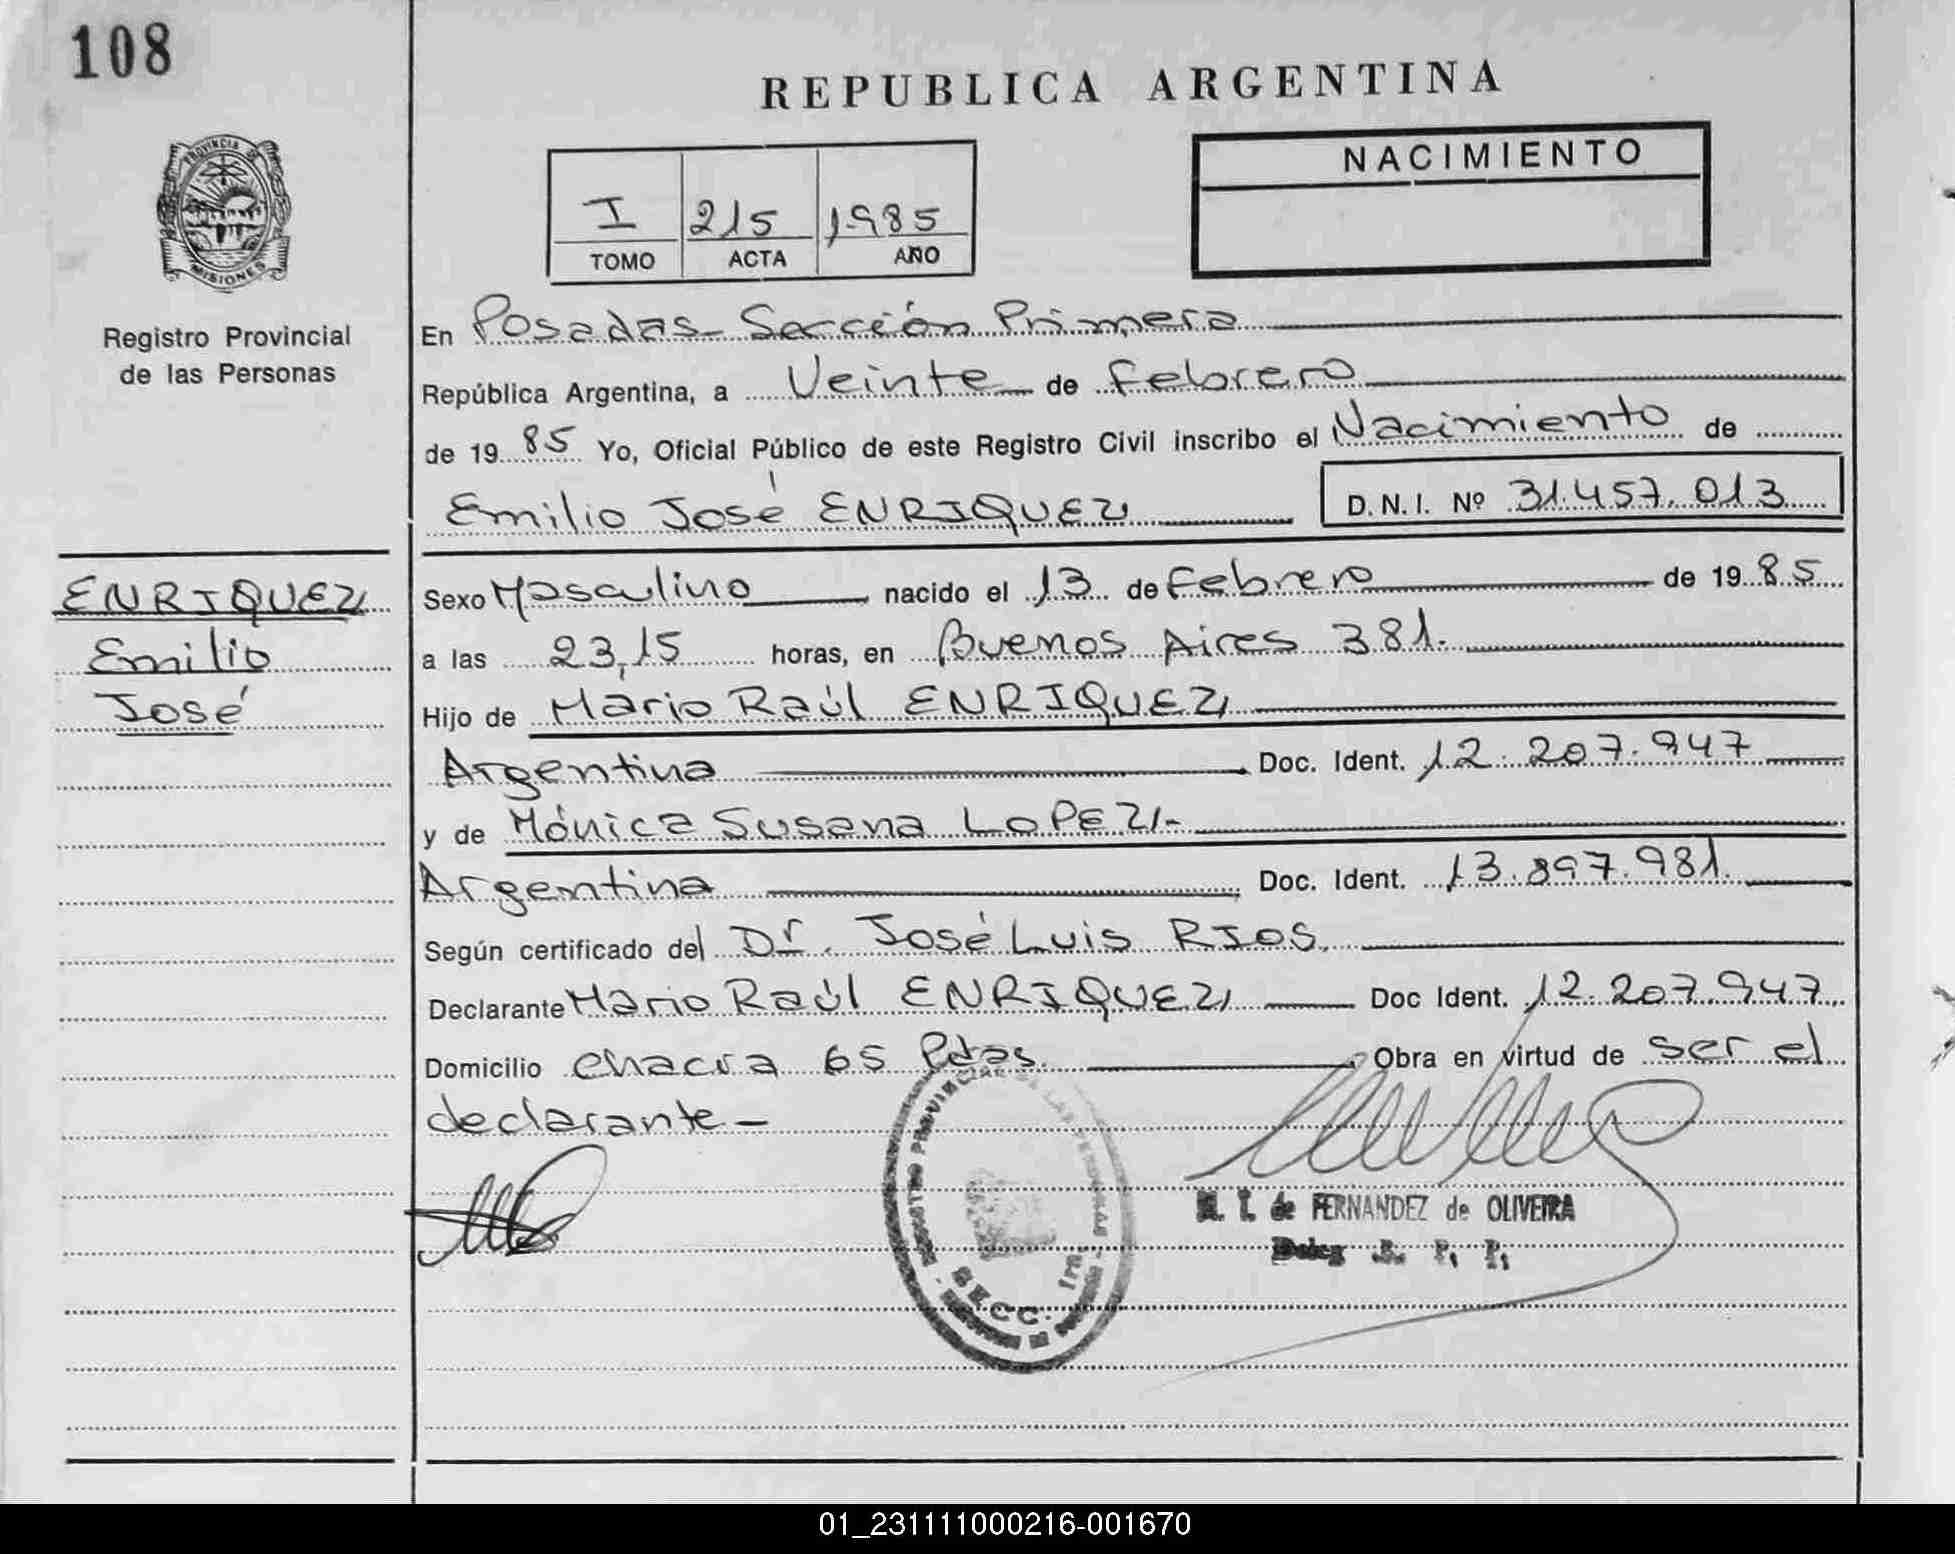 108
REPUBLICA ARGENTINA
PROVINCIA DE
MISIONES
NACIMIENTO
I 215 1985
TOMO ACTA AÑO
Registro Provincial
de las Personas
En Posadas - Sección Primera
República Argentina, a Veinte de Febrero
de 1985 Yo, Oficial Público de este Registro Civil inscribo el Nacimiento de
Emilio José ENRIQUEZ D.N.I. Nº 31.457.013
ENRIQUEZ
Emilio
José
Sexo Masculino nacido el 13 de Febrero de 1985
a las 23,15 horas, en Buenos Aires 381.
Hijo de Mario Raúl ENRIQUEZ
Argentina Doc. Ident. 12.207.947
y de Mónica Susana LOPEZ -
Argentina Doc. Ident. 13.897.981.
Según certificado del Dr. José Luis RIOS.
Declarante Mario Raúl ENRIQUEZ Doc Ident. 12.207.947
Domicilio chacra 65 Pdas. Obra en virtud de ser el
declarante -
REGISTRO PROVINCIAL DE LAS PERSONAS
SECC. 1ra
M. T. de FERNANDEZ de OLIVEIRA
Deleg. R. P. P.
01_231111000216-001670